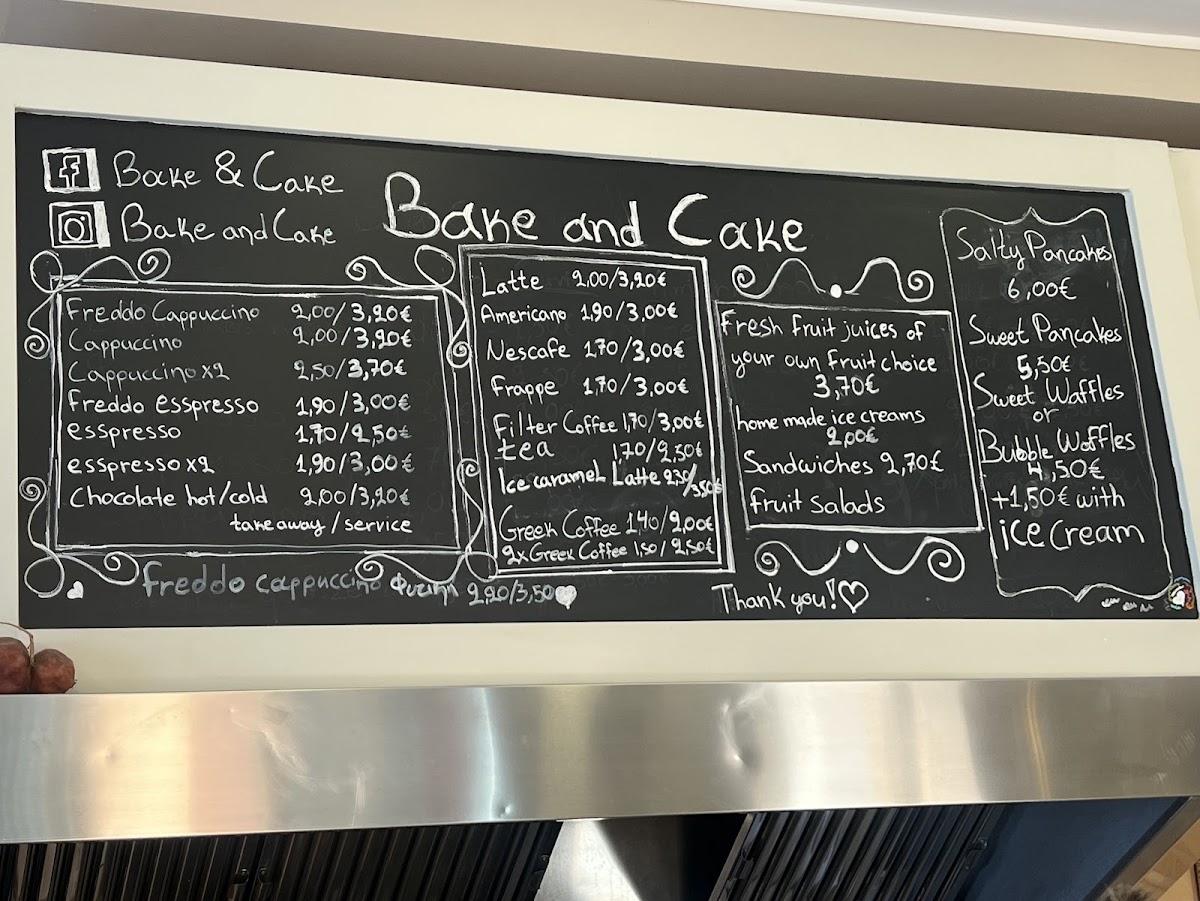 Bake & Cake
Bake and Cake
Bake and Cake
Freddo Cappuccino 2,00/3,20€
Cappuccino 2,00/3,20€
Cappuccino x2 2,50/3,70€
Freddo Esspresso 1,90/3,00€
esspresso 1,70/2,50€
esspresso x2 1,90/3,00€
Chocolate hot/cold 2,00/3,20€
take away/service
freddo cappuccino φυσικη 2,20/3,50
Latte 2,00/3,20€
Americano 1,90/3,00€
Nescafe 1,70/3,00€
Frappe 1,70/3,00€
Filter Coffee 1,70/3,00€
tea 1,70/2,50€
Ice caramel Latte 2,30/3,50€
Greek Coffee 1,40/2,00€
2x Greek Coffee 1,50/2,50€
Fresh fruit juices of
your own fruit choice
3,70€
home made ice creams
2,00€
Sandwiches 2,70€
fruit salads
Thank you!
Salty Pancakes
6,00€
Sweet Pancakes
5,50€
Sweet Waffles
or
Bubble Waffles
4,50€
+1,50€ with
ice Cream